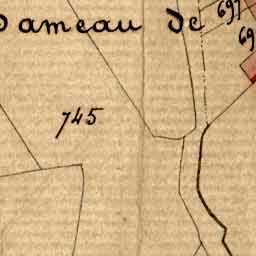 ameau de
697
69
745